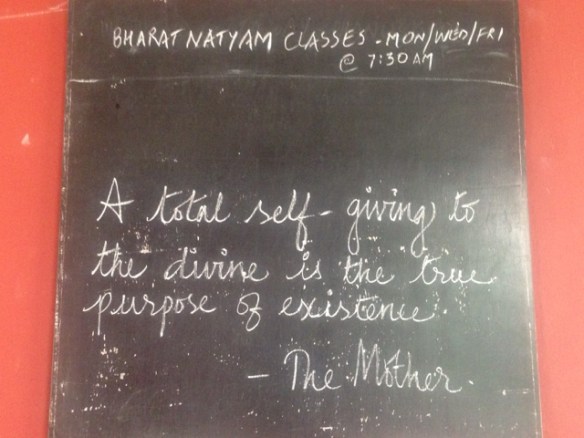 BHARATNATYAM CLASSES - MON/WED/FRI
@ 7:30 AM
A total self-giving to
the divine is the true
purpose of existence.
- The Mother.